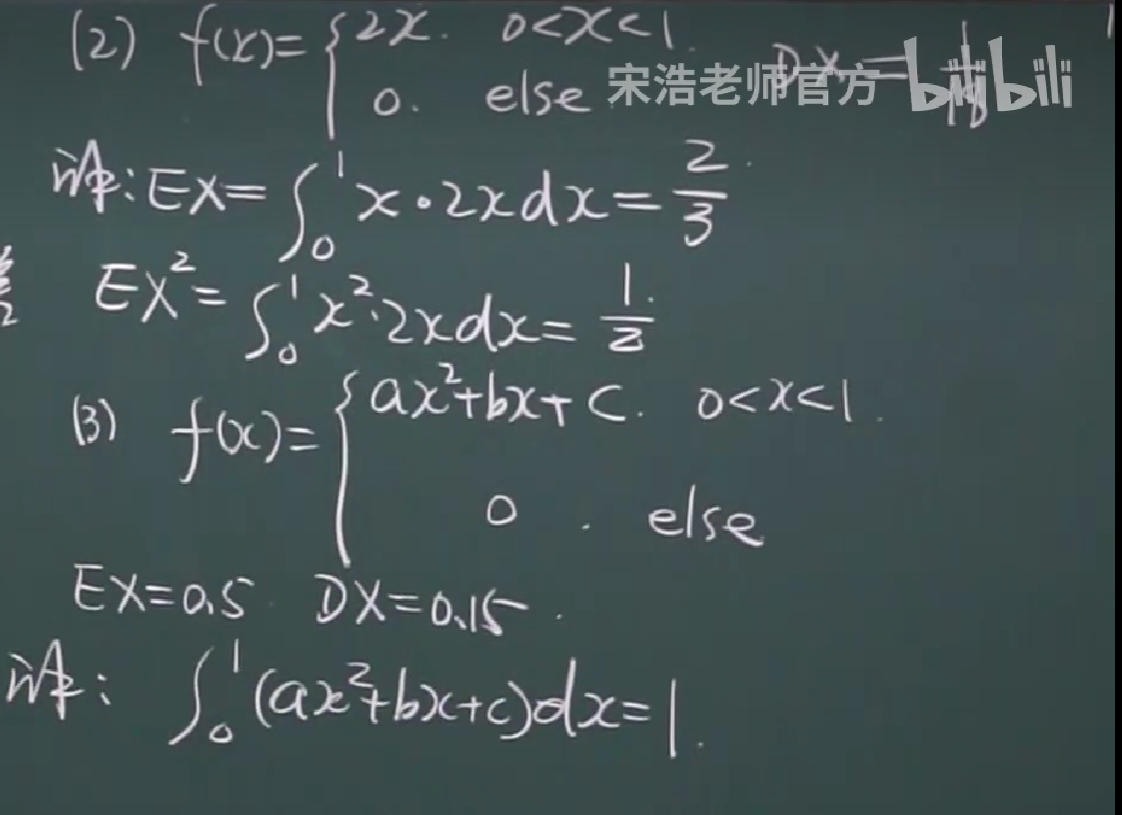 (2) f(x)={2x. 0<x<1.
0. else
DX=1/18
宋浩老师官方 bilibili
详:EX=∫₀¹x·2xdx=2/3.
EX²=∫₀¹x²·2xdx=1/2.
(3) f(x)={ax²+bx+c. 0<x<1.
0. else
EX=0.5 DX=0.15.
详: ∫₀¹(ax²+bx+c)dx=1.